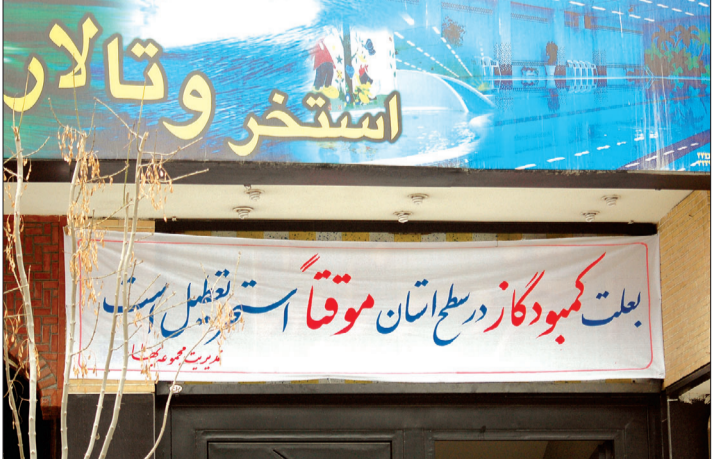 استخر و تالار
بعلت کمبود گاز در سطح استان موقتاً استخر تعطیل است
مدیریت مجموعه